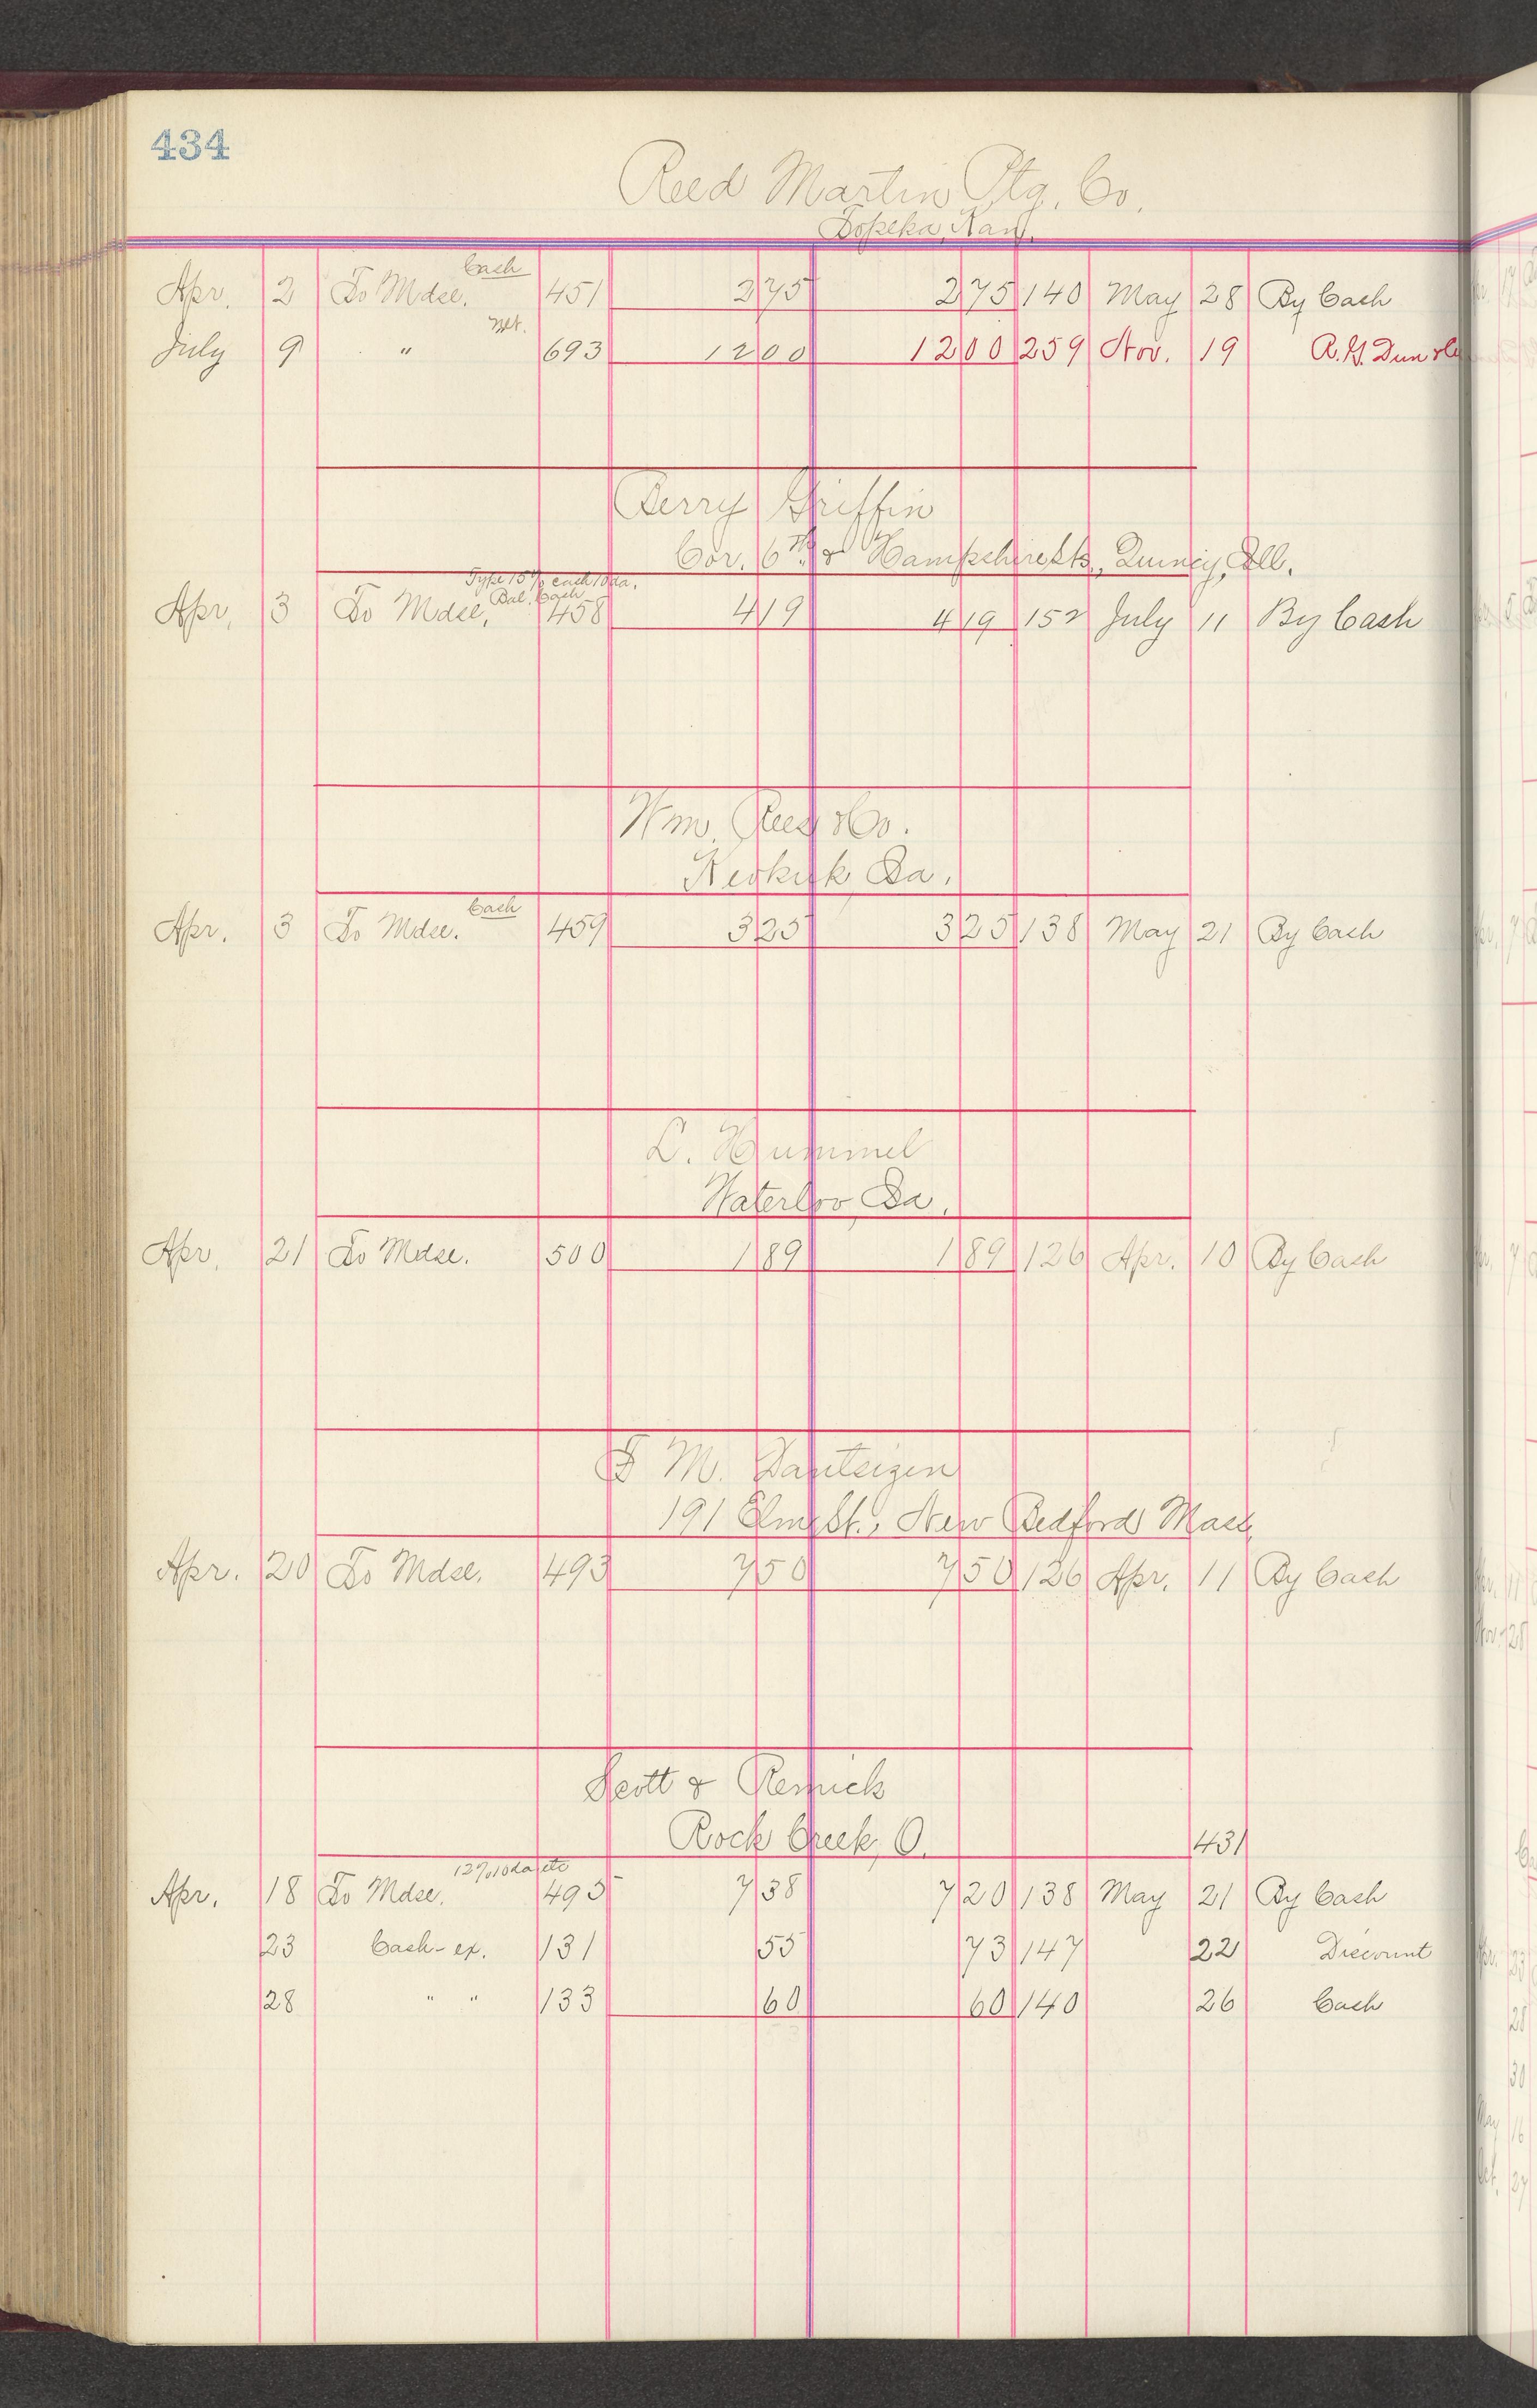 434
Reed Martin Ptg. Co.
Topeka, Kan.
Cash
Apr. 2 To Mdse. 451 2 75 2 75 140 May 28 By Cash
Net.
July 9 " 693 12 00 12 00 259 Nov. 19 R.G. Dun &Co
Berry Griffin
Cor. 6th & Hampshire Sts., Quincy, Ill.
Type 15% cash 10 da.
Bal. Cash
Apr. 3 To Mdse. 458 4 19 4 19 152 July 11 By Cash
Wm. Rees &Co.
Keokuk, Ia.
Cash
Apr. 3 To Mdse. 459 3 25 3 25 138 May 21 By Cash
L. Hummel
Waterloo, Ia.
Apr. 21 To Mdse. 500 1 89 1 89 126 Apr. 10 By Cash
M.
191 Elm St., New Bedford Mass.
Apr. 20 To Mdse. 493 7 50 7 50 126 Apr. 11 By Cash
Scott & Remick
Rock Creek, O. 431
12% 10 da etc
Apr. 18 To Mdse. 495 7 38 7 20 138 May 21 By Cash
23 Cash-ex. 131 55 73 147 22 Discount
28 " " 133 60 60 140 26 Cash